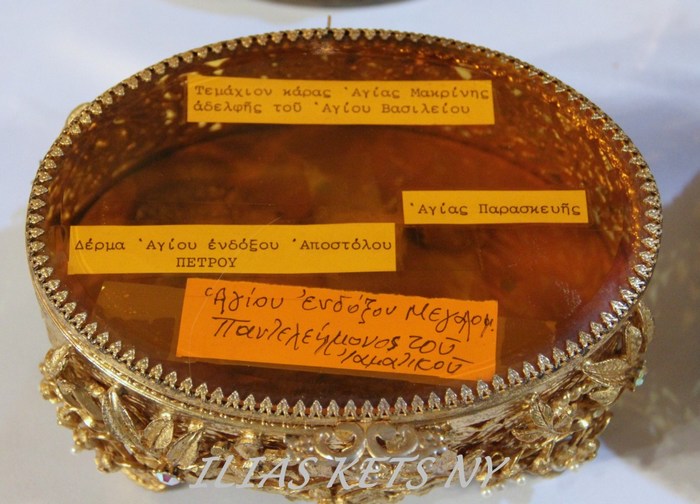 Τεμάχιον κάρας Ἁγίας Μακρίνης
ἀδελφῆς τοῦ Ἁγίου Βασιλείου
Ἁγίας Παρασκευῆς
Δέρμα Ἁγίου ἐνδόξου Ἀποστόλου
ΠΕΤΡΟΥ
Ἁγίου ἐνδόξου Μεγαλομ.
Παντελεήμονος τοῦ
Ἰαματικοῦ
ILIAS KETS NY